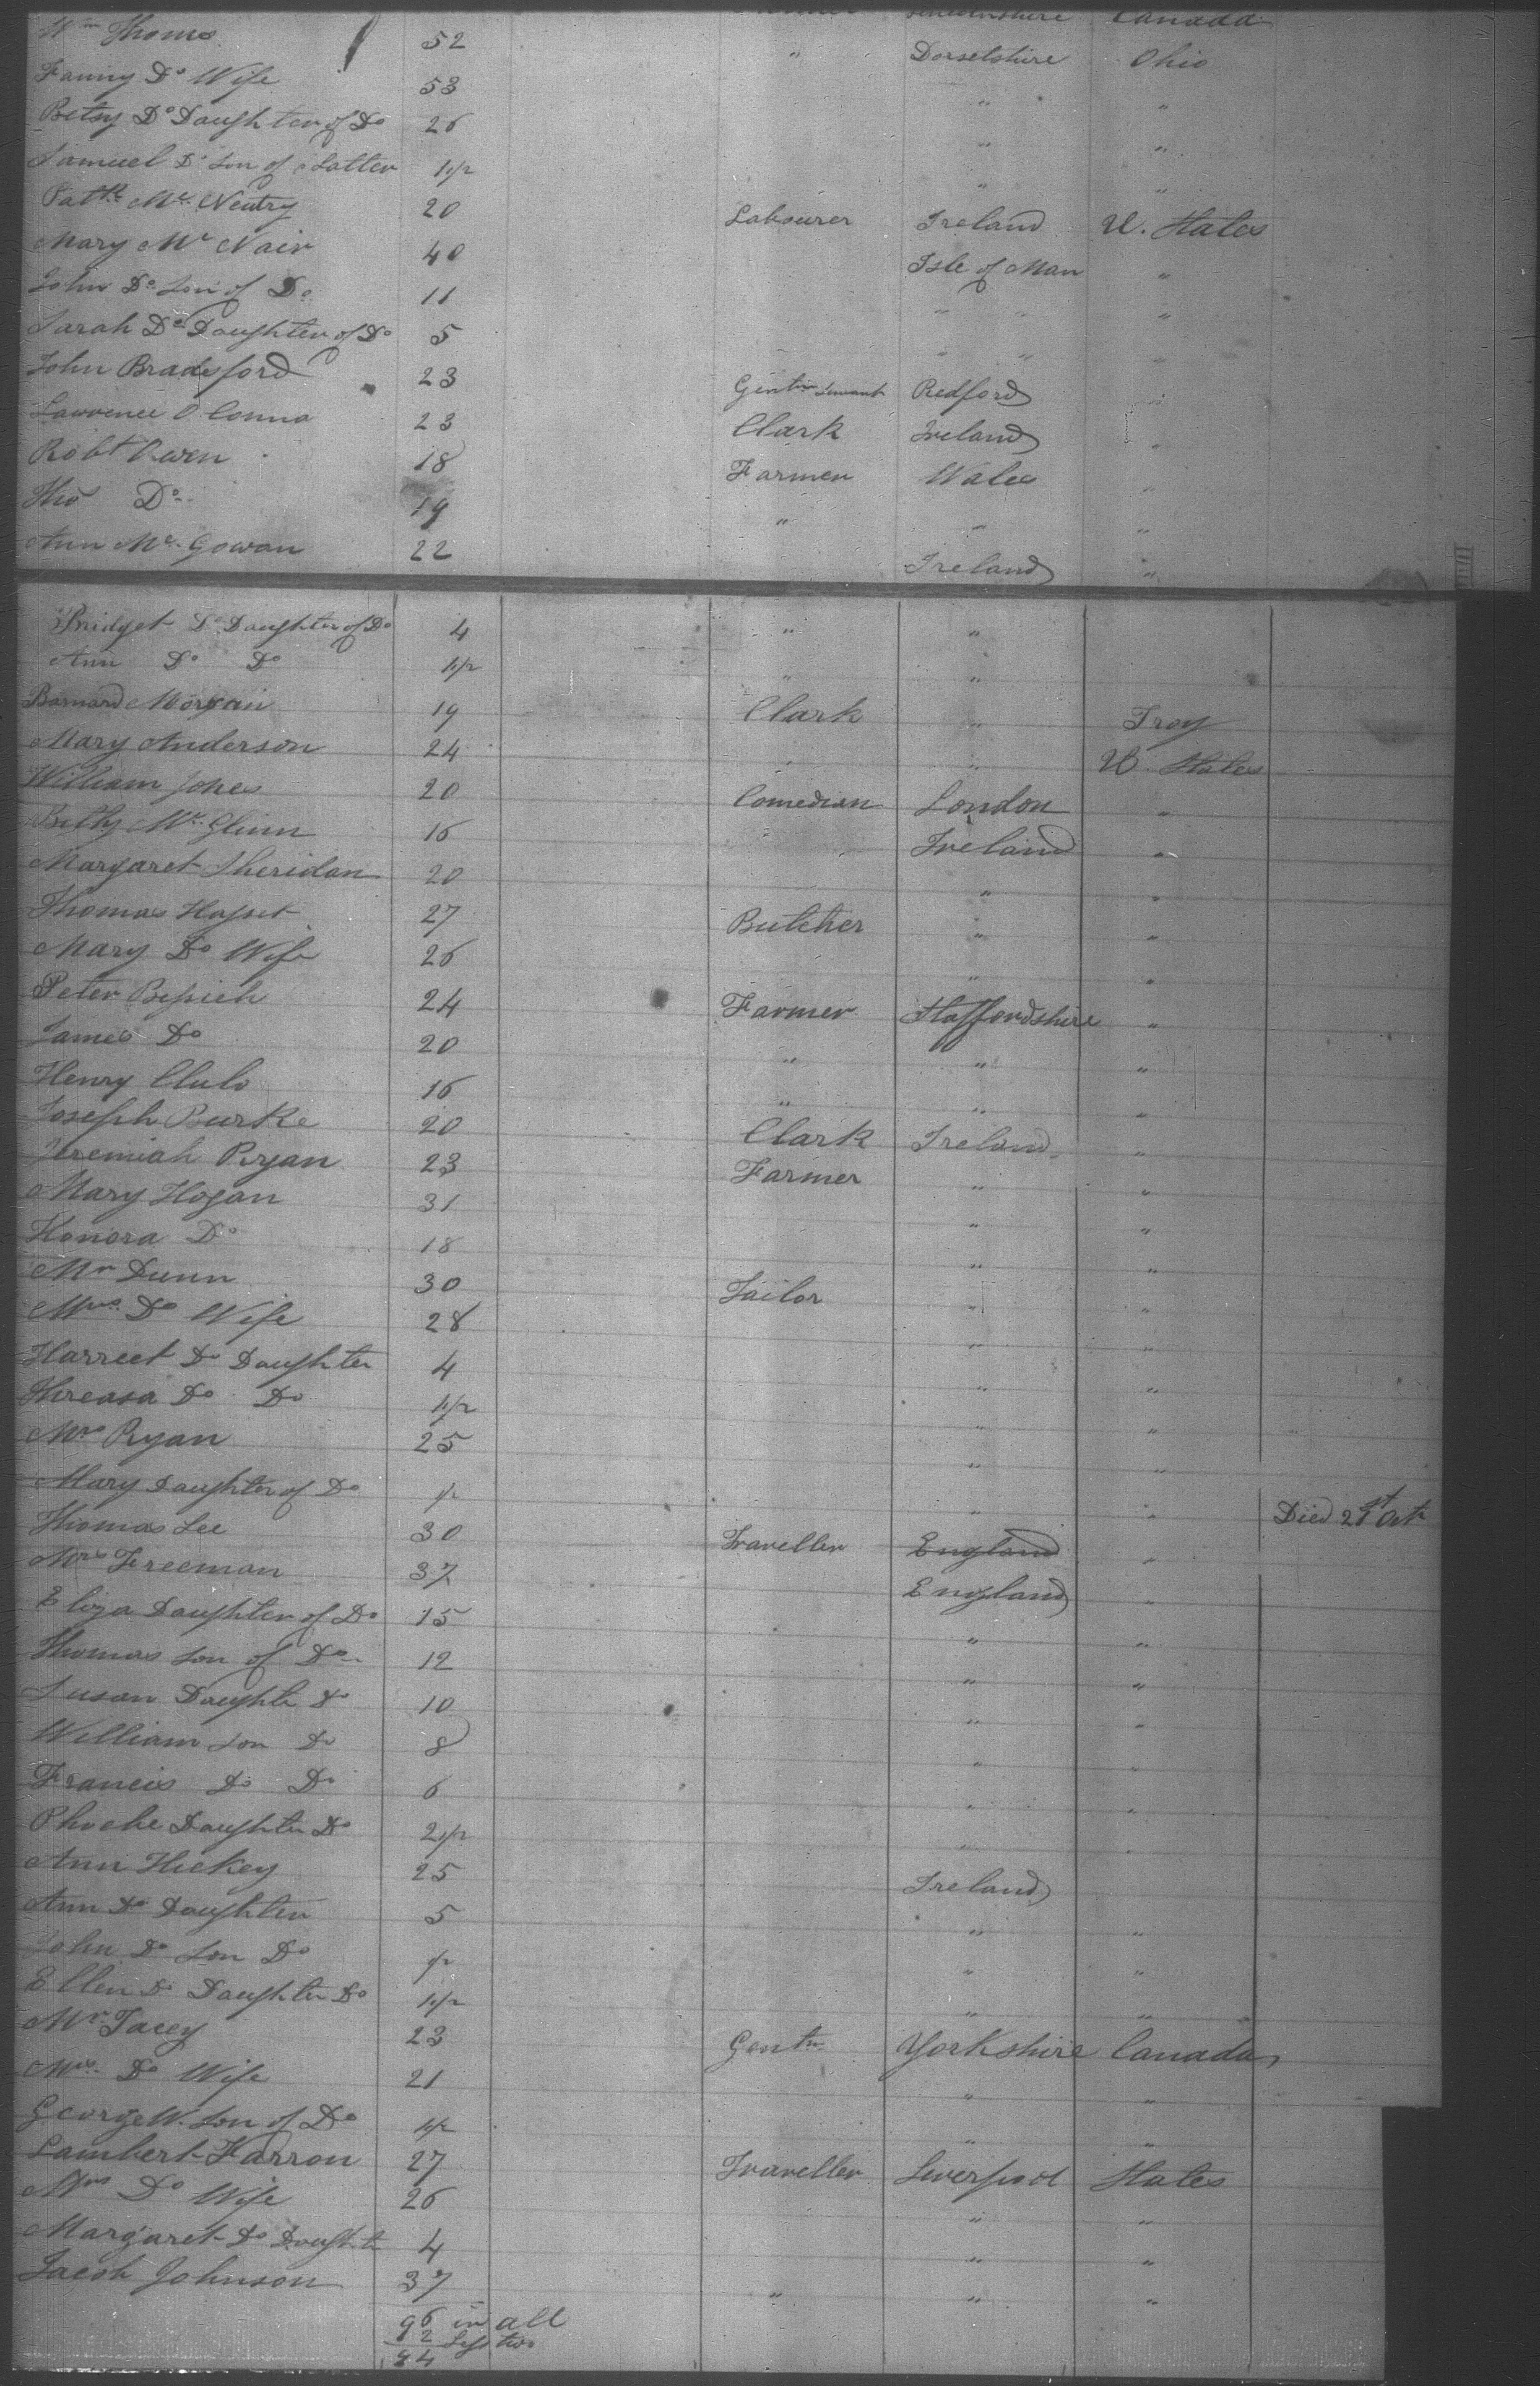 Lincolnshire Canada
Wm Thoms 52 " Dorsetshire Ohio
Fanny Do Wife 53 " "
Betsy Do Daughter of Do 26 " "
Samuel Do Son of Latter 1 1/2 " "
Patk Mc 20 Labourer Ireland U. States
Mary Mc Nair 40 Isle of Man "
John Do Son of Do 11 " " "
Sarah Do Daughter of Do 5 " " "
John Bradsford 23 Gentn Servant Bedford "
Lawrence O Conno 23 Clark Ireland "
Robt Owen 18 Farmer Wales "
Tho Do 19 " " "
Ann Mc Gowan 22 Ireland "
Bridget Do Daughter of Do 4 " "
Ann Do Do 1 1/2 " "
Barnard Morgan 19 Clark " Troy
Mary Anderson 24 " U. States
William Jones 20 Comedian London "
Mc Glinn 16 Ireland "
Margaret Sheridan 20 " "
Thomas 27 Butcher " "
Mary Do Wife 26 " "
Peter 24 Farmer Staffordshire "
James Do 20 " " "
Henry Clulo 16 " " "
Joseph Burke 20 Clark Ireland "
Jeremiah Ryan 23 Farmer " "
Mary Hogan 31 " "
Honora Do 18 " "
Mr Dunn 30 Tailor " "
Mrs Do Wife 28 " "
Harreet Do Daughter 4 " "
Threasa Do Do 1 1/2 " "
Mrs Ryan 25 " "
Mary Daughter of Do 1/2 " " Died 21st Octr
Thomas Lee 30 Traveller England "
Mrs Freeman 37 England "
Eliza Daughter of Do 15 " "
Thomas Son of Do 12 " "
Susan Daughte Do 10 " "
William Son Do 8 " "
Francis Do Do 6 " "
Phoebe Daughter Do 2 1/2 " "
Ann Hickey 25 Ireland
Ann Do Daughter 5 " "
John Do Son Do 1/2 " "
Ellen Do Daughter Do 1 1/2 " "
Mr Tacey 23 Gentn Yorkshire Canada
Mrs Do Wife 21 " "
George W. Son of Do 1/2 " "
Lambert Farron 27 Traveller Liverpool States
Mrs Do Wife 26 " "
Margaret Do Daught 4 " "
Jacob Johnson 37 " " "
96 in all
2 Less two
94